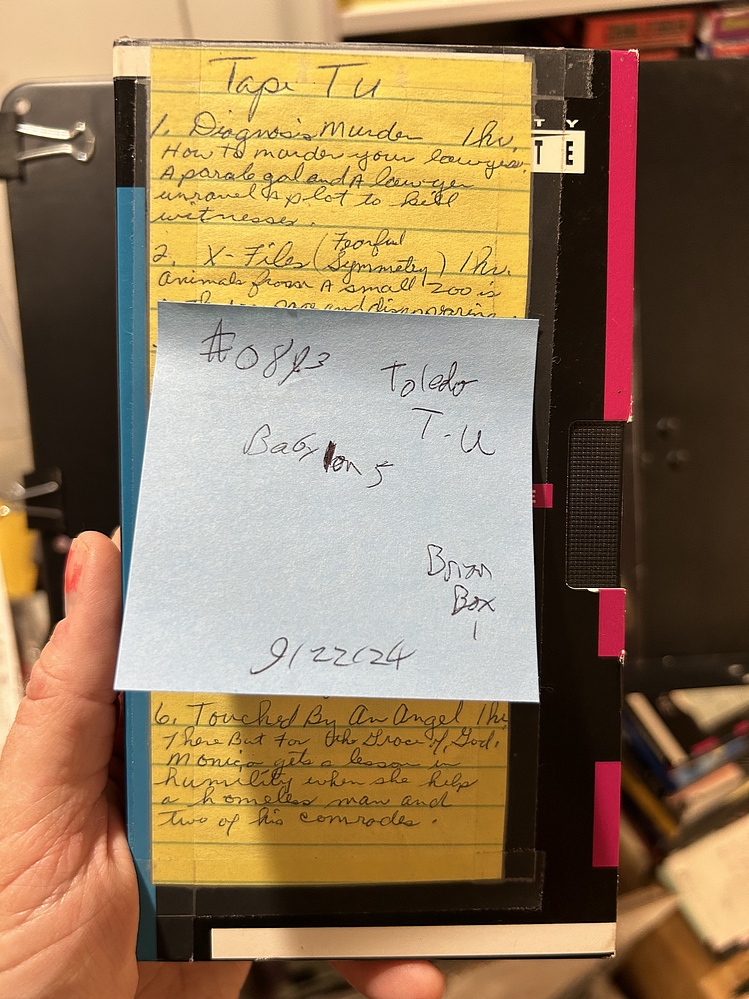 Tape TU
1. Diagnosis Murder 1hr.
How to murder your lawyer.
A paralegal and A lawyer
unravel A plot to kill
witnesses.
2. X-Files (Fearful
Symmetry) 1hr.
Animals from A small zoo is
and disappearing.
TY
TE
#0893
Toledo
T-U
Babylon 5
E
Brian
Box
1
9/22/24
6. Touched By An Angel 1hr
There But For the Grace of, God.
Monica gets a lesson in
humility when she helps
a homeless man and
two of his comrades.